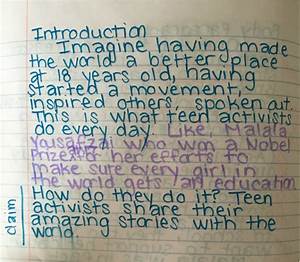 Introduction
Imagine having made
the world a better place
at 18 years old, having
started a movement,
inspired others, spoken out.
This is what teen activists
do every day. Like, Malala
Yousafzai who won a Nobel
Prize for her efforts to
make sure every girl in
the world gets an education
How do they do it? Teen
activists share their
amazing stories with the
world.
claim